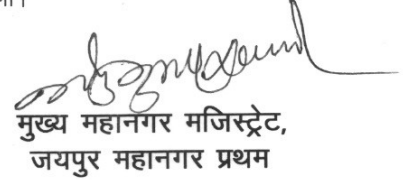 मुख्य महानगर मजिस्ट्रेट,
जयपुर महानगर प्रथम